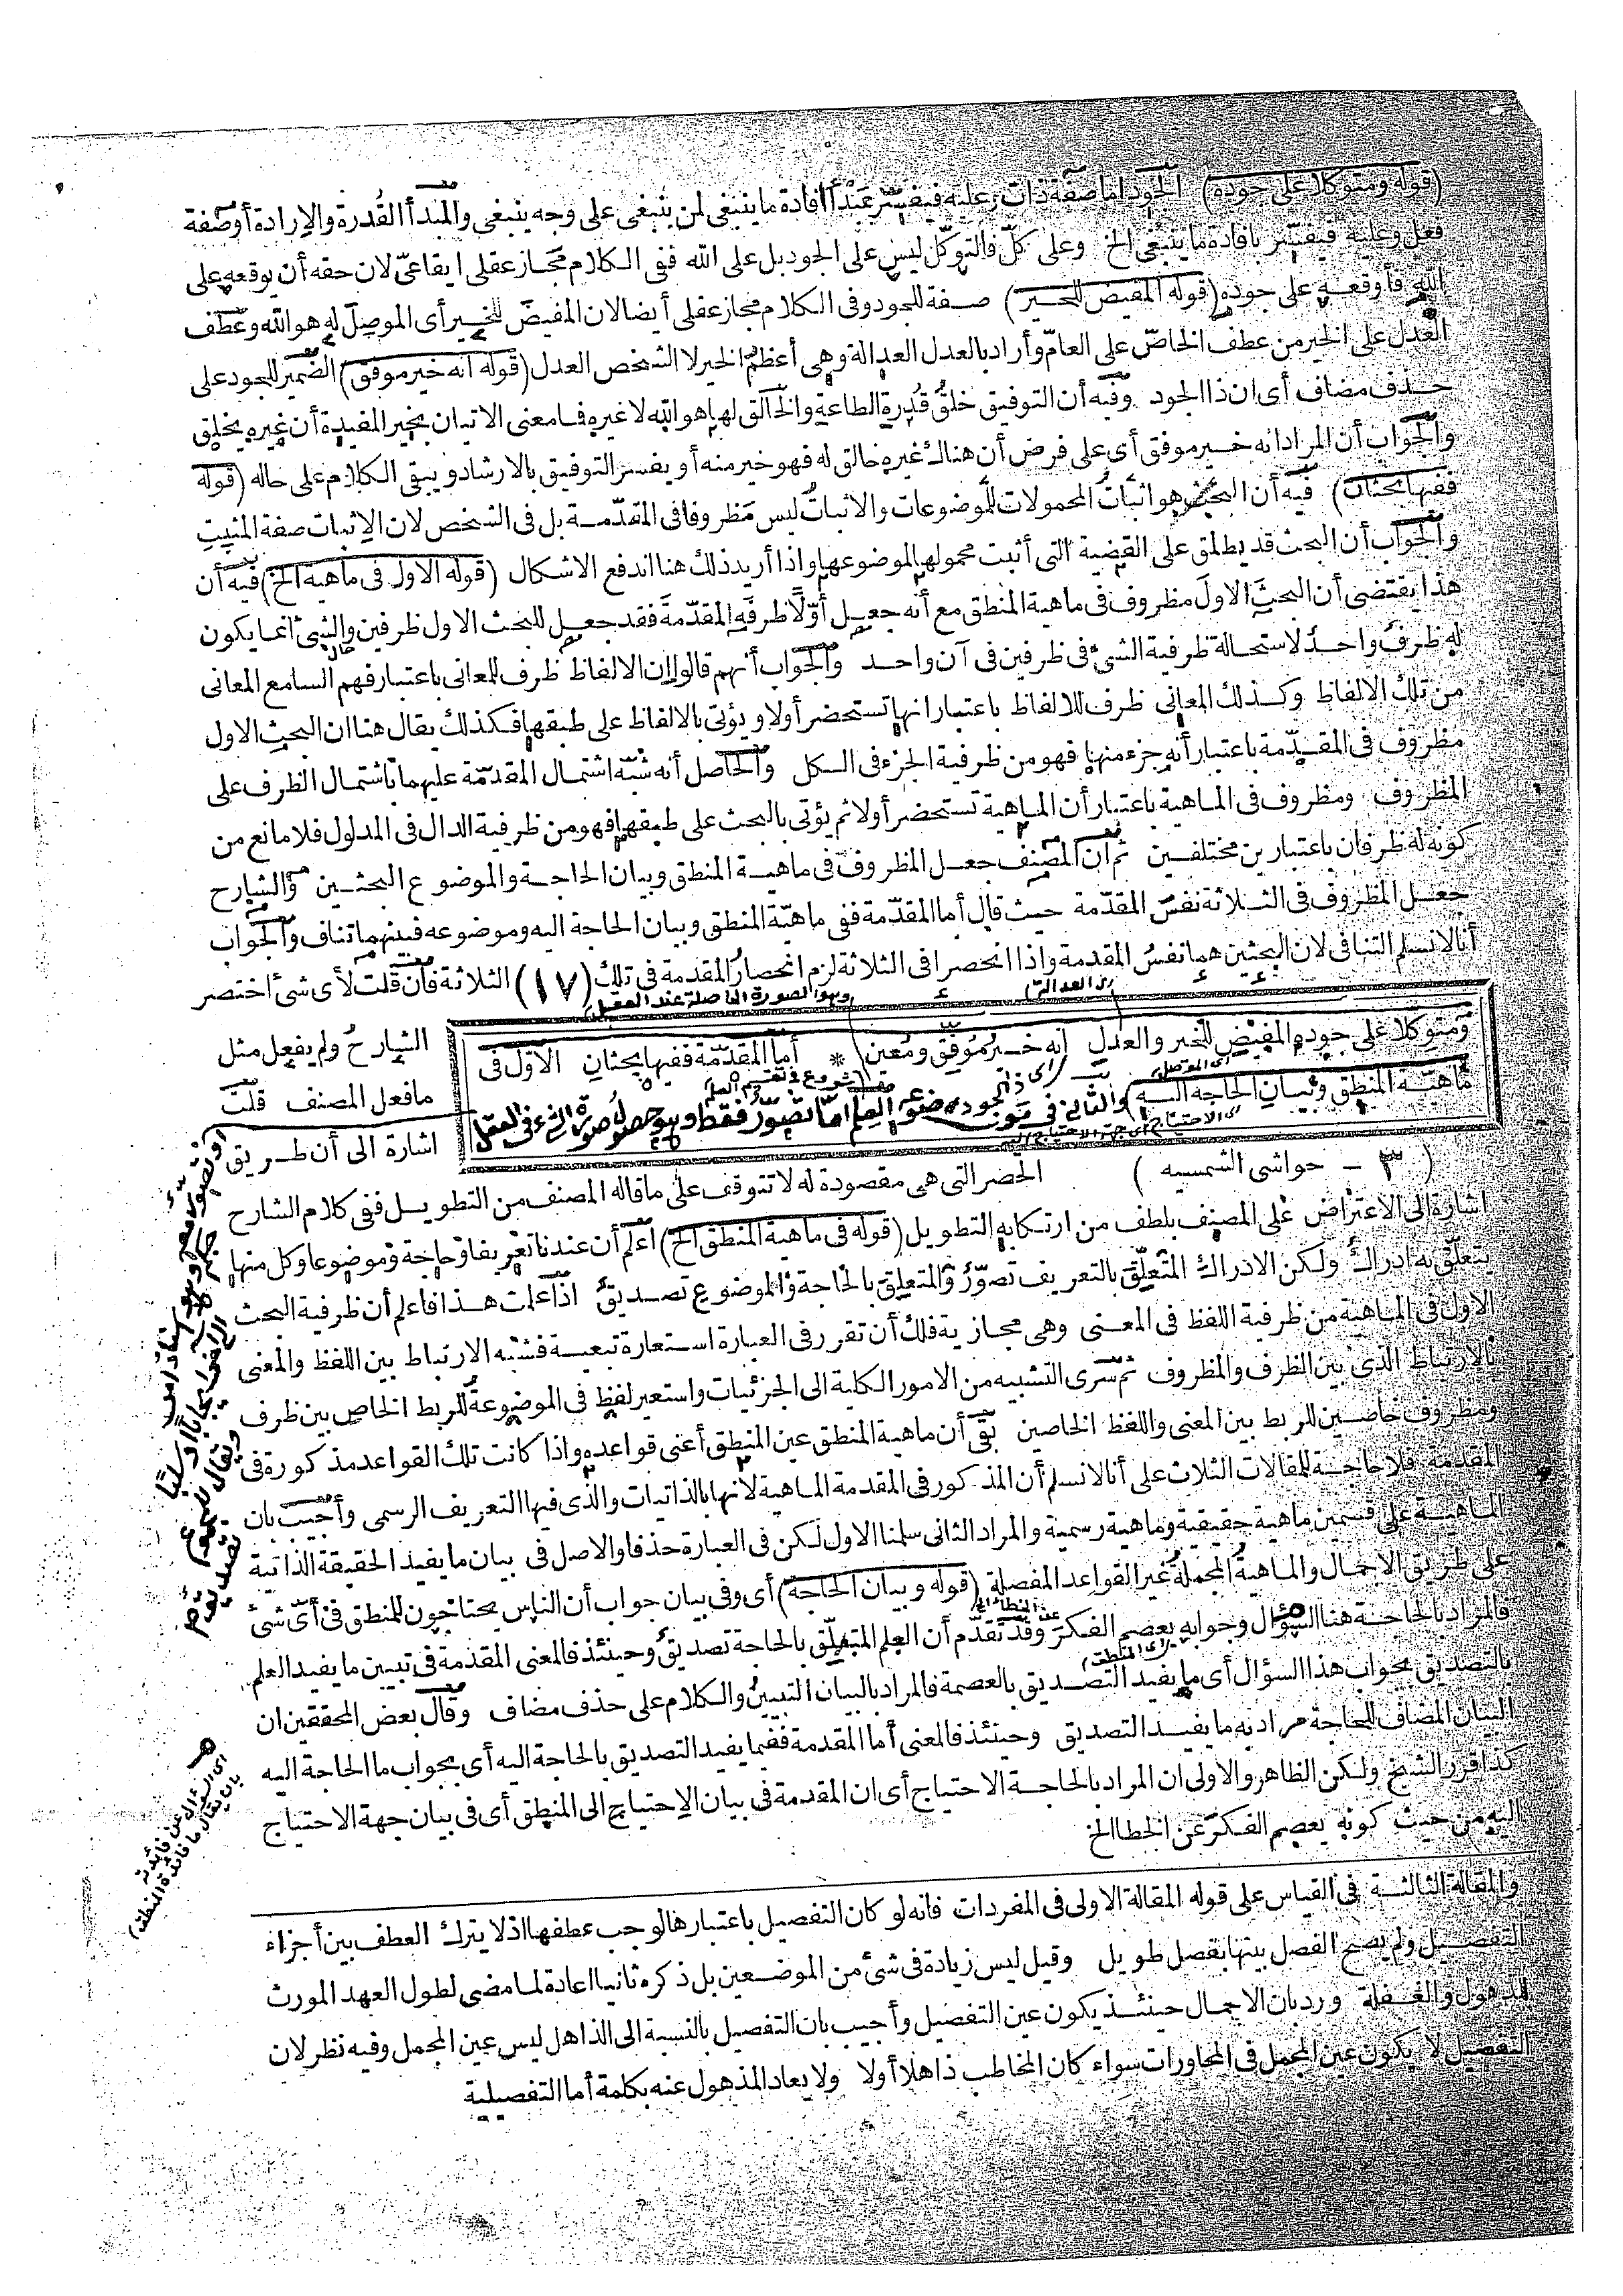 (قوله ومتوكلا على جوده) الجود اما صفة ذات وعليه فيفسر بمبدأ افادة ما ينبغى لمن ينبغى على وجه ينبغى والمبدأ القدرة والإرادة أو صفة
فعل وعليه فيفسر بافادة ما ينبغى الخ وعلى كلّ فالتوكّل ليس على الجود بل على الله ففى الكلام مجاز عقلى ايقاعىّ لان حقه أن يوقعه على
الله فأوقعه على جوده (قوله المفيض للخير) صفة للجود وفى الكلام مجاز عقلى أيضا لان المفيض للخير أى الموصل له هو الله وعطف
العدل على الخير من عطف الخاصّ على العامّ وأراد بالعدل العدالة وهى أعظم الخير لا الشخص العدل (قوله انه خير موفق) الضمير للجود على
حذف مضاف أى ان ذا الجود وفيه أن التوفيق خلق قدرة الطاعة والخالق لها هو الله لا غيره فما معنى الاتيان بخير المفيدة أن غيره يخلق
والجواب أن المراد انه خير موفق أى على فرض أن هناك غيره خالق له فهو خير منه أو يفسر التوفيق بالارشاد ويبقى الكلام على حاله (قوله
ففيها بحثان) فيه أن البحث هو اثبات المحمولات للموضوعات والاثبات ليس مظروفا فى المقدّمة بل فى الشخص لان الإثبات صفة المثبت
والجواب أن البحث قد يطلق على القضية التى أثبت محمولها لموضوعها واذا أريد ذلك هنا اندفع الاشكال (قوله الاول فى ماهية الخ) فيه أن
هذا يقتضى أن البحث الاول مظروف فى ماهية المنطق مع أنه جعل أوّلا ظرفه المقدّمة فقد جعل للبحث الاول ظرفين والشئ انما يكون
له ظرف واحد لاستحالة ظرفية الشئ فى ظرفين فى آن واحد والجواب أنهم قالوا ان الالفاظ ظرف للمعانى باعتبار فهم السامع المعانى
من تلك الالفاظ وكذلك المعانى ظرف للالفاظ باعتبار انها تستحضر أولا ويؤتى بالالفاظ على طبقها فكذلك يقال هنا ان البحث الاول
مظروف فى المقدّمة باعتبار أنه جزء منها فهو من ظرفية الجزء فى الكل والحاصل أنه شبه اشتمال المقدّمة عليهما باشتمال الظرف على
المظروف ومظروف فى الماهية باعتبار أن الماهية تستحضر أولا ثم يؤتى بالبحث على طبقها فهو من ظرفية الدال فى المدلول فلا مانع من
كونه له ظرفان باعتبارين مختلفين ثم ان المصنف جعل المظروف فى ماهية المنطق وبيان الحاجة والموضوع البحثين والشارح
جعل المظروف فى الثلاثة نفس المقدّمة حيث قال أما المقدّمة ففى ماهيّة المنطق وبيان الحاجة اليه وموضوعه فبينهما تناف والجواب
أنا لا نسلم التنافى لان البحثين هما نفس المقدمة واذا انحصرا فى الثلاثة لزم انحصار المقدمة فى تلك (١٧) الثلاثة فان قلت لأى شئ اختصر
أى العدالة
وهو الصورة الحاصلة عند العقل
ومتوكلا على جوده المفيض للخير والعدل انه خير موفّق ومعين * أما المقدّمة ففيها بحثان الأوّل فى
أى ذا الجود
شروع فى تقسيم العلم
ماهيّة المنطق وبيان الحاجة اليه والثانى فى موضوعه العلم امّا تصوّر فقط وهو حصول صورة الشئ فى العقل
أى الاحتياج أى جهة الاحتياج اليه
الشارح ولم يفعل مثل
ما فعل المصنف قلت
اشارة الى أن طريق
(٣ - حواشى الشمسيه)
الحصر التى هى مقصودة له لا تتوقف على ما قاله المصنف من التطويل ففى كلام الشارح
اشارة الى الاعتراض على المصنف بلطف من ارتكابه التطويل (قوله فى ماهية المنطق الخ) اعلم أن عندنا تعريفا وحاجة وموضوعا وكل منها
يتعلّق به ادراك ولكن الادراك المتعلّق بالتعريف تصوّر والمتعلق بالحاجة والموضوع تصديق اذا علمت هذا فاعلم أن ظرفية البحث
الاول فى الماهية من ظرفية اللفظ فى المعنى وهى مجازية فلك أن تقرر فى العبارة استعارة تبعية فشبه الارتباط بين اللفظ والمعنى
بالارتباط الذى بين الظرف والمظروف ثم سرى التشبيه من الامور الكلية الى الجزئيات واستعير لفظ فى الموضوعة للربط الخاص بين ظرف
ومظروف خاصين للربط بين المعنى واللفظ الخاصين بقى أن ماهية المنطق عين المنطق أعنى قواعده واذا كانت تلك القواعد مذكورة فى
المقدمة فلا حاجة للمقالات الثلاث على أنا لا نسلم أن المذكور فى المقدمة الماهية لانها بالذاتيات والذى فيها التعريف الرسمى وأجيب بان
الماهية على قسمين ماهية حقيقية وماهية رسمية والمراد الثانى سلمنا الاول لكن فى العبارة حذفا والاصل فى بيان ما يفيد الحقيقة الذاتية
على طريق الاجمال والماهية المجملة غير القواعد المفصلة (قوله وبيان الحاجة) أى وفى بيان جواب أن الناس يحتاجون للمنطق فى أىّ شئ
فالمراد بالحاجة هنا السؤال وجوابه يعصم الفكر وقد تقدّم أن العلم المتعلّق بالحاجة تصديق وحينئذ فالمعنى المقدّمة فى تبيين ما يفيد العلم
بالتصديق بجواب هذا السؤال أى ما يفيد التصديق بالعصمة فالمراد بالبيان التبيين والكلام على حذف مضاف وقال بعض المحققين ان
البيان المضاف للحاجة مراد به ما يفيد التصديق وحينئذ فالمعنى أما المقدمة ففيما يفيد التصديق بالحاجة اليه أى بجواب ما الحاجة اليه
كذا قرر الشيخ ولكن الظاهر والاولى ان المراد بالحاجة الاحتياج أى ان المقدمة فى بيان الاحتياج الى المنطق أى فى بيان جهة الاحتياج
اليه من حيث كونه يعصم الفكر عن الخطا الخ
أى السؤال عن فائدته
بان يقال ما فائدة المنطق
والمقالة الثالثة فى القياس على قوله المقالة الاولى فى المفردات فانه لو كان التفصيل باعتبارها لوجب عطفها اذ لا يترك العطف بين أجزاء
التفصيل ولم يصح الفصل بينها بفصل طويل وقيل ليس زيادة فى شئ من الموضعين بل ذكره ثانيا اعادة لما مضى لطول العهد المورث
للذهول والغفلة ورد بان الاجمال حينئذ يكون عين التفصيل وأجيب بان التفصيل بالنسبة الى الذاهل ليس عين المجمل وفيه نظر لان
التفصيل لا يكون عين المجمل فى المحاورات سواء كان المخاطب ذاهلا أولا ولا يعاد المذهول عنه بكلمة أما التفصيلية